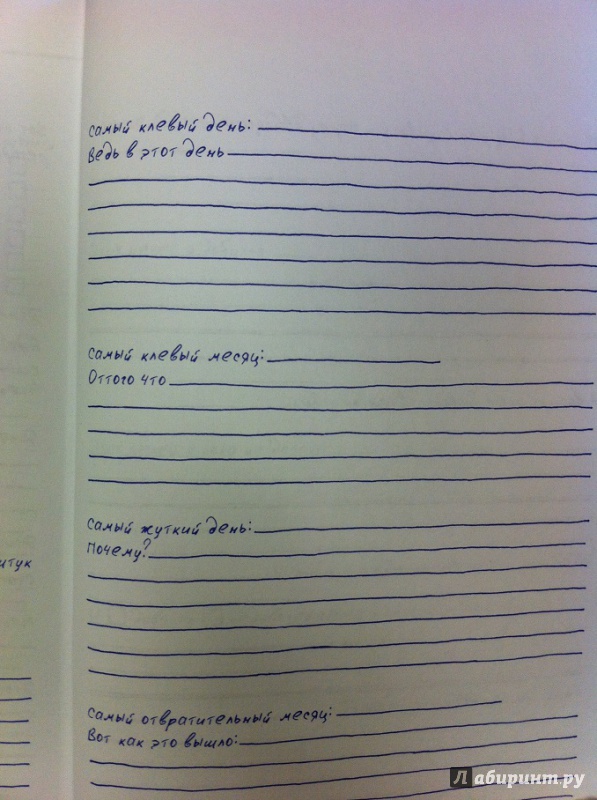 Самый клевый день:
Ведь в этот день
Самый клевый месяц:
Оттого что
Самый жуткий день:
Почему?
штук
Самый отвратительный месяц:
Вот как это вышло:
Лабиринт.ру